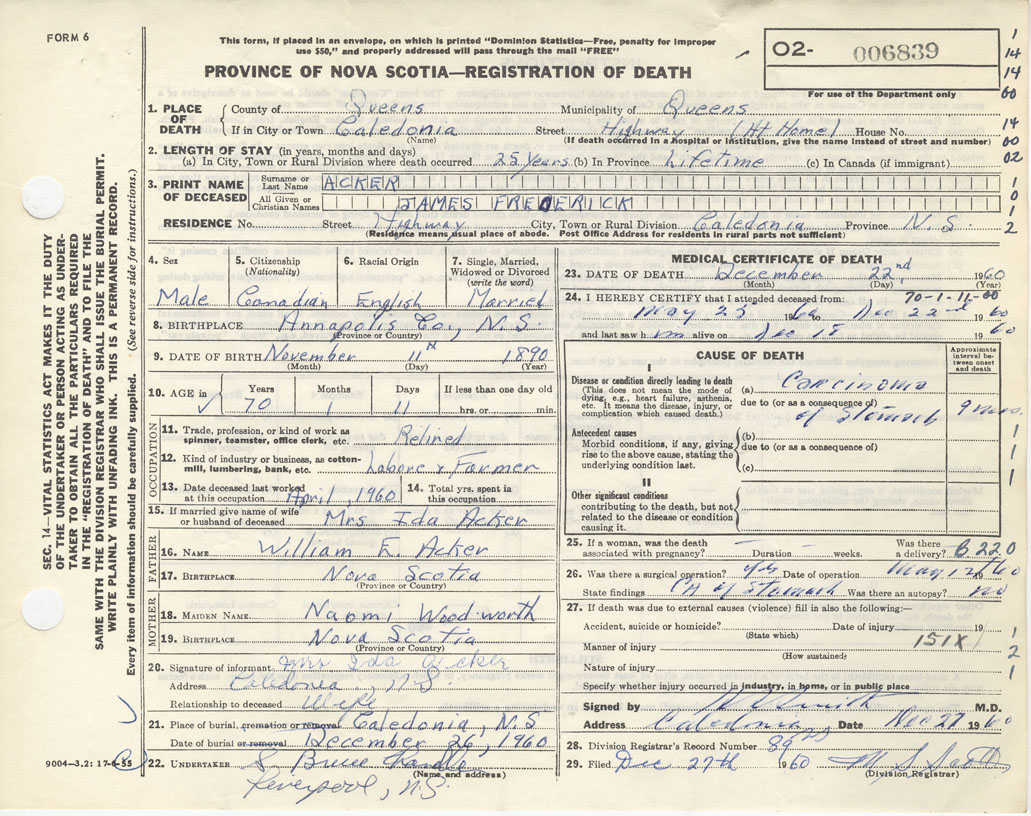 FORM 6
This form, if placed in an envelope, on which is printed "Dominion Statistics—Free, penalty for improper
use $50," and properly addressed will pass through the mail "FREE"
PROVINCE OF NOVA SCOTIA—REGISTRATION OF DEATH
02- 006839
For use of the Department only
1
14
14
00
14
00
02
1
0
1
2
1. PLACE OF DEATH County of Queens Municipality of Queens
If in City or Town Caledonia Street Highway (At Home) House No.
(Name) (If death occurred in a hospital or institution, give the name instead of street and number)
2. LENGTH OF STAY (in years, months and days)
(a) In City, Town or Rural Division where death occurred 25 years (b) In Province Lifetime (c) In Canada (if immigrant)
3. PRINT NAME OF DECEASED Surname or Last Name ACKER
All Given or Christian Names JAMES FREDERICK
RESIDENCE No. Street Highway City, Town or Rural Division Caledonia Province N.S.
(Residence means usual place of abode. Post Office Address for residents in rural parts not sufficient)
4. Sex Male
5. Citizenship (Nationality) Canadian
6. Racial Origin English
7. Single, Married, Widowed or Divorced (write the word) Married
8. BIRTHPLACE Annapolis Co., N.S.
(Province or Country)
9. DATE OF BIRTH November 11th 1890
(Month) (Day) (Year)
10. AGE in Years Months Days If less than one day old
70 1 11 hrs. or min.
OCCUPATION
11. Trade, profession, or kind of work as spinner, teamster, office clerk, etc. Retired
12. Kind of industry or business, as cotton-mill, lumbering, bank, etc. Labore & Farmer
13. Date deceased last worked at this occupation April, 1960
14. Total yrs. spent in this occupation
15. If married give name of wife or husband of deceased Mrs Ida Acker
FATHER
16. NAME William E. Acker
17. BIRTHPLACE Nova Scotia
(Province or Country)
MOTHER
18. MAIDEN NAME Naomi Woodworth
19. BIRTHPLACE Nova Scotia
(Province or Country)
20. Signature of informant Mrs Ida Acker
Address Caledonia, N.S.
Relationship to deceased Wife
21. Place of burial, cremation or removal Caledonia, N.S
Date of burial or removal December 26, 1960
22. UNDERTAKER Bruce
(Name and address)
Liverpool, N.S.
MEDICAL CERTIFICATE OF DEATH
23. DATE OF DEATH December 22nd 1960
(Month) (Day) (Year)
70-1-11-00
24. I HEREBY CERTIFY that I attended deceased from:
May 25 1960 to Dec 22nd 1960
and last saw him alive on Dec 18 1960
CAUSE OF DEATH
Approximate interval between onset and death
I
Disease or condition directly leading to death
(This does not mean the mode of dying, e.g., heart failure, asthenia, etc. It means the disease, injury, or complication which caused death.)
(a) Carcinoma
due to (or as a consequence of)
of Stomach 9 mos.
Antecedent causes
Morbid conditions, if any, giving rise to the above cause, stating the underlying condition last.
(b)
due to (or as a consequence of)
(c)
II
Other significant conditions contributing to the death, but not related to the disease or condition causing it.
1
1
1
25. If a woman, was the death associated with pregnancy? Duration weeks. Was there a delivery? B 220
26. Was there a surgical operation? yes Date of operation May 1960
State findings CA of Stomach Was there an autopsy? no
27. If death was due to external causes (violence) fill in also the following:—
Accident, suicide or homicide? Date of injury 19
(State which)
Manner of injury 151X
(How sustained)
Nature of injury
1
2
1
Specify whether injury occurred in industry, in home, or in public place
Signed by Smith M.D.
Address Caledonia Date Dec 27 1960
28. Division Registrar's Record Number 89
29. Filed Dec 27th 1960
(Division Registrar)
SEC. 14—VITAL STATISTICS ACT MAKES IT THE DUTY
OF THE UNDERTAKER OR PERSON ACTING AS UNDER-
TAKER TO OBTAIN ALL THE PARTICULARS REQUIRED
IN THE "REGISTRATION OF DEATH" AND TO FILE THE
SAME WITH THE DIVISION REGISTRAR WHO SHALL ISSUE THE BURIAL PERMIT.
WRITE PLAINLY WITH UNFADING INK. THIS IS A PERMANENT RECORD.
Every item of information should be carefully supplied. (See reverse side for instructions.)
9004—3.2: 17-6-55